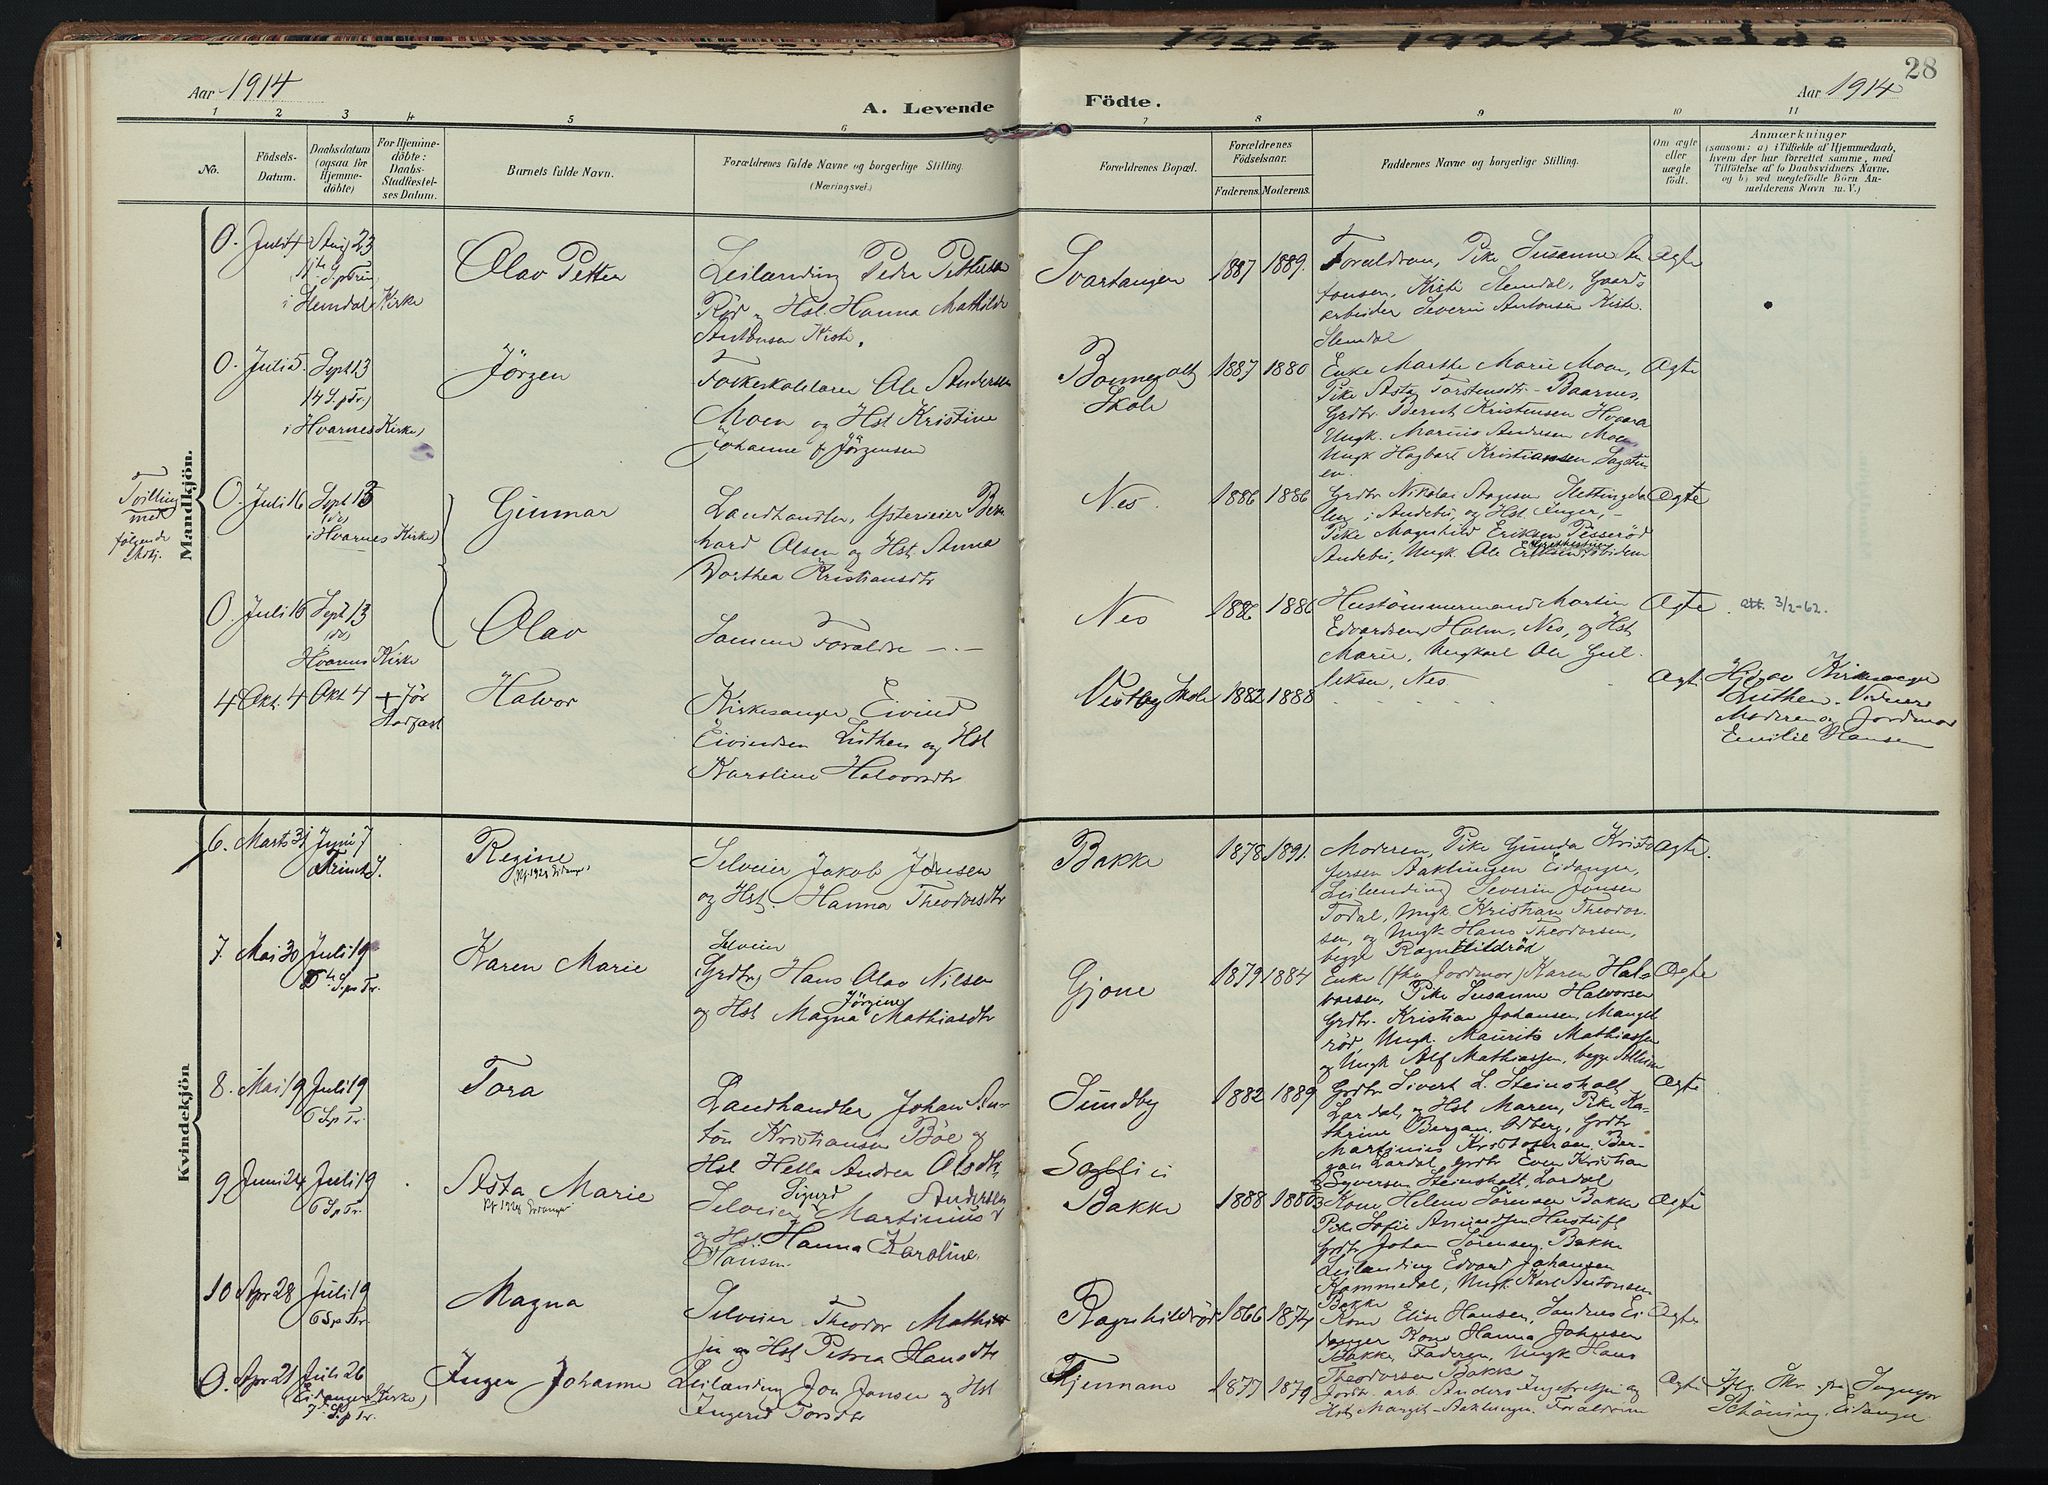 28
Aar 1914
A. Levende Födte.
Aar 1914
1 2 3 4 5 6 7 8 9 10 11
No.
Födsels-
Datum.
Daabsdatum
(ogsaa for
Hjemme-
döbte)
For Hjemme-
döbte:
Daabs-
Stadfæstel-
ses Datum.
Barnets fulde Navn.
Forældrenes fulde Navne og borgerlige Stilling.
(Næringsvei.)
Forældrenes Bopæl.
Forældrenes
Födselsaar.
Faderens. Moderens.
Faddernes Navne og borgerlige Stilling.
Om ægte
eller
uægte
födt.
Anmærkninger
(saasom: a) i Tilfælde af Hjemmedaab,
hvem der har forrettet samme, med
Tilföielse af to Daabsvidners Navne.
og b) ved uægtefödte Börn An-
melderens Navn m. V.)
Mandkjön.
0. Juli 4 Aug 23
i Hemdal Kirke
Olav Petter
Leilænding Peder Pettersen
Röd og Hst. Hanna Mathilde
Antonsen Kiste.
Svartangen
1887 1889.
Forældrene, Pike Susanne An
tonsen, Kiste Slemdal, Gaards
arbeider Severin Antonsen Kiste
Slemdal
Ægte
0. Juli 5. Sept 13
14 S. p Tr.)
i Hvarnes Kirke)
Jörgen
Folkeskolelærer Ole Andersen
Moen og Hst Kristine
Johanne f. Jörgensen
Skole
1887 1880
Enke Marthe Marie Moen,
Pike Asta Torstensdtr. Baarnes,
Grdbr. Bernt Kristensen Hvaara
Ungk. Marius Andersen Moen
Ungk Hagbart Kristiansen
Ægte
Tvilling
med
følgende
0. Juli 16 Sept 13
(do)
i Hvarnes Kirke)
Gunnar
Landhandler, Ysterieier Bern
hard Olsen og Hst. Anna
Dorthea Kristiansdtr
Nes.
1886 1886
Grdbr Nikolai Aagesen Slettingda
len i Andebu, og Hst Inger,
Pike Magnhild Eriksen Pesseröd
Andebu, Ungk. Ole Eriksen ibidem
Ægte
0. Juli 16 Sept 13
(do)
Hvarnes Kirke
Olav
Samme Forældre
Nes
1886 1886
Hustömmermand Martin
Edvardsen Holm, Nes, og Hst
Marie, Ungkarl Ole Gul
liksen, Nes
Ægte. att. 3/2-62.
4 Okt. 4 Okt 4 + för
Stadfæst
Halvor
Kirkesanger Eivind
Eivindsen Luthen og Hst
Karoline Halvorsdtr
Vestby Skole
1882 1888
Ægte
Hj. av Kirkesanger
Luthen. Vidner:
Moderen og Jordmor
Emilie Hansen
Kvindekjön
6. Marts 31 Juni 7
Trinit.
Regine
Selveier Jakob Jonsen
og Hst. Hanna Theodorsdtr
Bakke
1878 1891.
Moderen, Pike Gunda Kristo
fersen Aaklungen Eidanger,
Leilænding Severin Jonsen
Todal, Ungk. Kristian Theodor-
sen, og Ungk Hans Theodorsen,
begge Ragnhildröd
Ægte.
7. Mai 30 Juli 19
6te S. p Tr.
Karen Marie
Selveier
(Grdbr) Hans Olav Nilsen
og Hst Magna Jörgine Mathiasdtr
Gjone
1879 1884
Enke (fhv Jordmor) Karen Hal
vorsen, Pike Susanne Halvorsen
Grdbr. Kristian Johansen, Mangel
röd, Ungk. Maurits Mathiassen
og Ungk Alf Mathiassen, begge Allum
Ægte
8. Mai 19 Juli 19
6 S p Tr.
Tora
Landhandler Johan An-
ton Kristiansen Böe og
Hst Helta Andrea Olsdtr
Sundby
1882 1889
Grdbr Sivert L. Steinsholt
Lardal, og Hst Maren, Pike Ka-
thrine Bergan, Odberg, Grdbr
Martinius Kristofersen Ber-
gan Lardal, Grdbr Even Kristian
Syversen Steinsholt, Lardal
Ægte
9 Juni 24 Juli 19
6 S p Tr.
Asta Marie
Selveier Sigurd Martinius Andersen
og Hst. Hanna Karoline
Hansen
Bakke
1888 1880
Kone Helene Sörensen Bakke
Pike Sofie Amundsen Hustuft
Grdbr Johan Sörensen Bakke
Leilænding Edvard Johansen
Kammedal, Ungk Karl Antonsen
Bakke
Ægte
10 Apr 28 Juli 19
6 S p Tr.
Magna
Selveier Theodor Mathis
sen og Hst Petrea Hansdtr
Ragnhildröd
1866 1874
Kone Elise Hansen, Sandnes Ei
danger Kone Hanna Johnsen
Bakke, Faderen, Ungk Hans
Theodorsen Bakke
Ægte
0. Apr 21 Juli 26
(Eidanger Kirke)
7. S p Tr.
Inger Johanne
Leilænding Jon Jonsen og Hst
Ingerid Torsdtr
Tjennane
1877 1879
Jordbr. arb. Anders Ingebretsen og
Hst Margit Aaklungen. Forældrene
Ægte
Iflg Skr. fra Sogneprest
Schöning, Eidanger